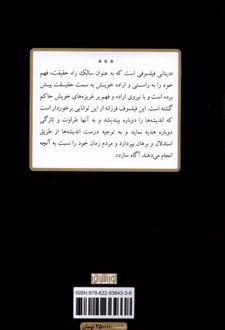 ***
«دینانی فیلسوفی است که به عنوان سالک راه حقیقت، فهم
خود را به راستی و اراده خویش به سمت حقیقت پیش
برده است و با نیروی اراده و فهم بر غریزه‌های خویش حاکم
گشته است. این فیلسوف فرزانه از این توانایی برخوردار است
که اندیشه‌ها را دوباره بیندیشد و به آنها طراوت و تازگی
دوباره هدیه نماید و به توجیه درست اندیشه‌ها از طریق
استدلال و برهان بپردازد و مردم زمان خود را نسبت به آنچه
انجام می‌دهند آگاه سازد».
ISBN:978-622-93643-3-8
تومان